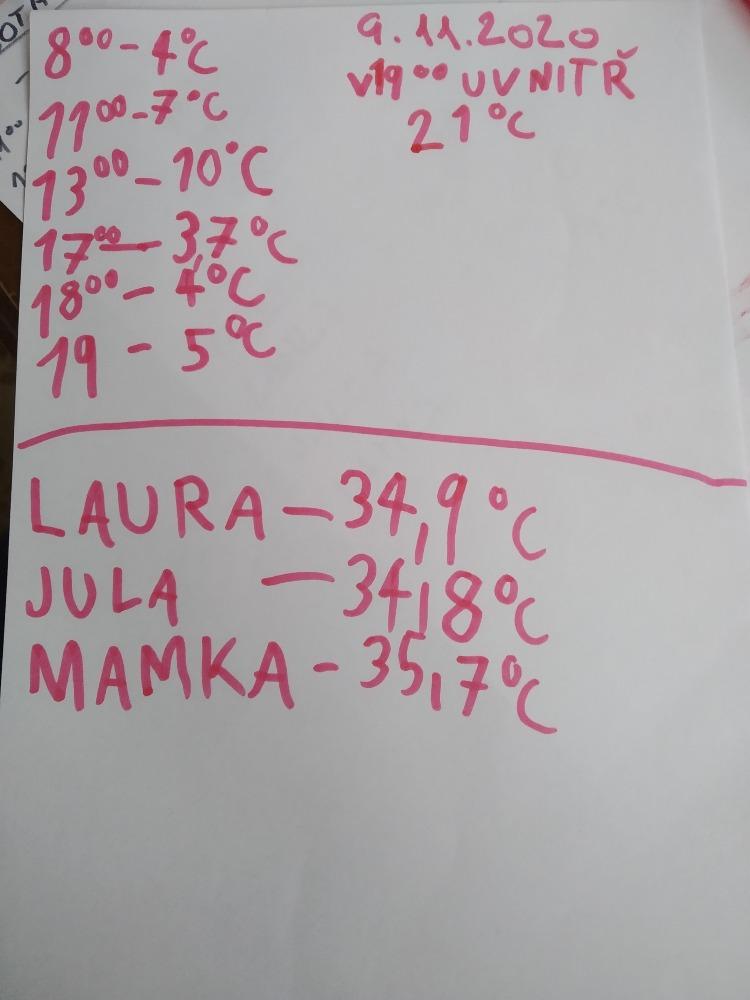 8⁰⁰ - 4°C
11⁰⁰ - 7°C
13⁰⁰ - 10°C
17⁰⁰ - 3,7°C
18⁰⁰ - 4°C
19 - 5°C
9.11.2020
v19⁰⁰ UVNITŘ
21°C
LAURA - 34,9°C
JULA - 34,8°C
MAMKA - 35,7°C